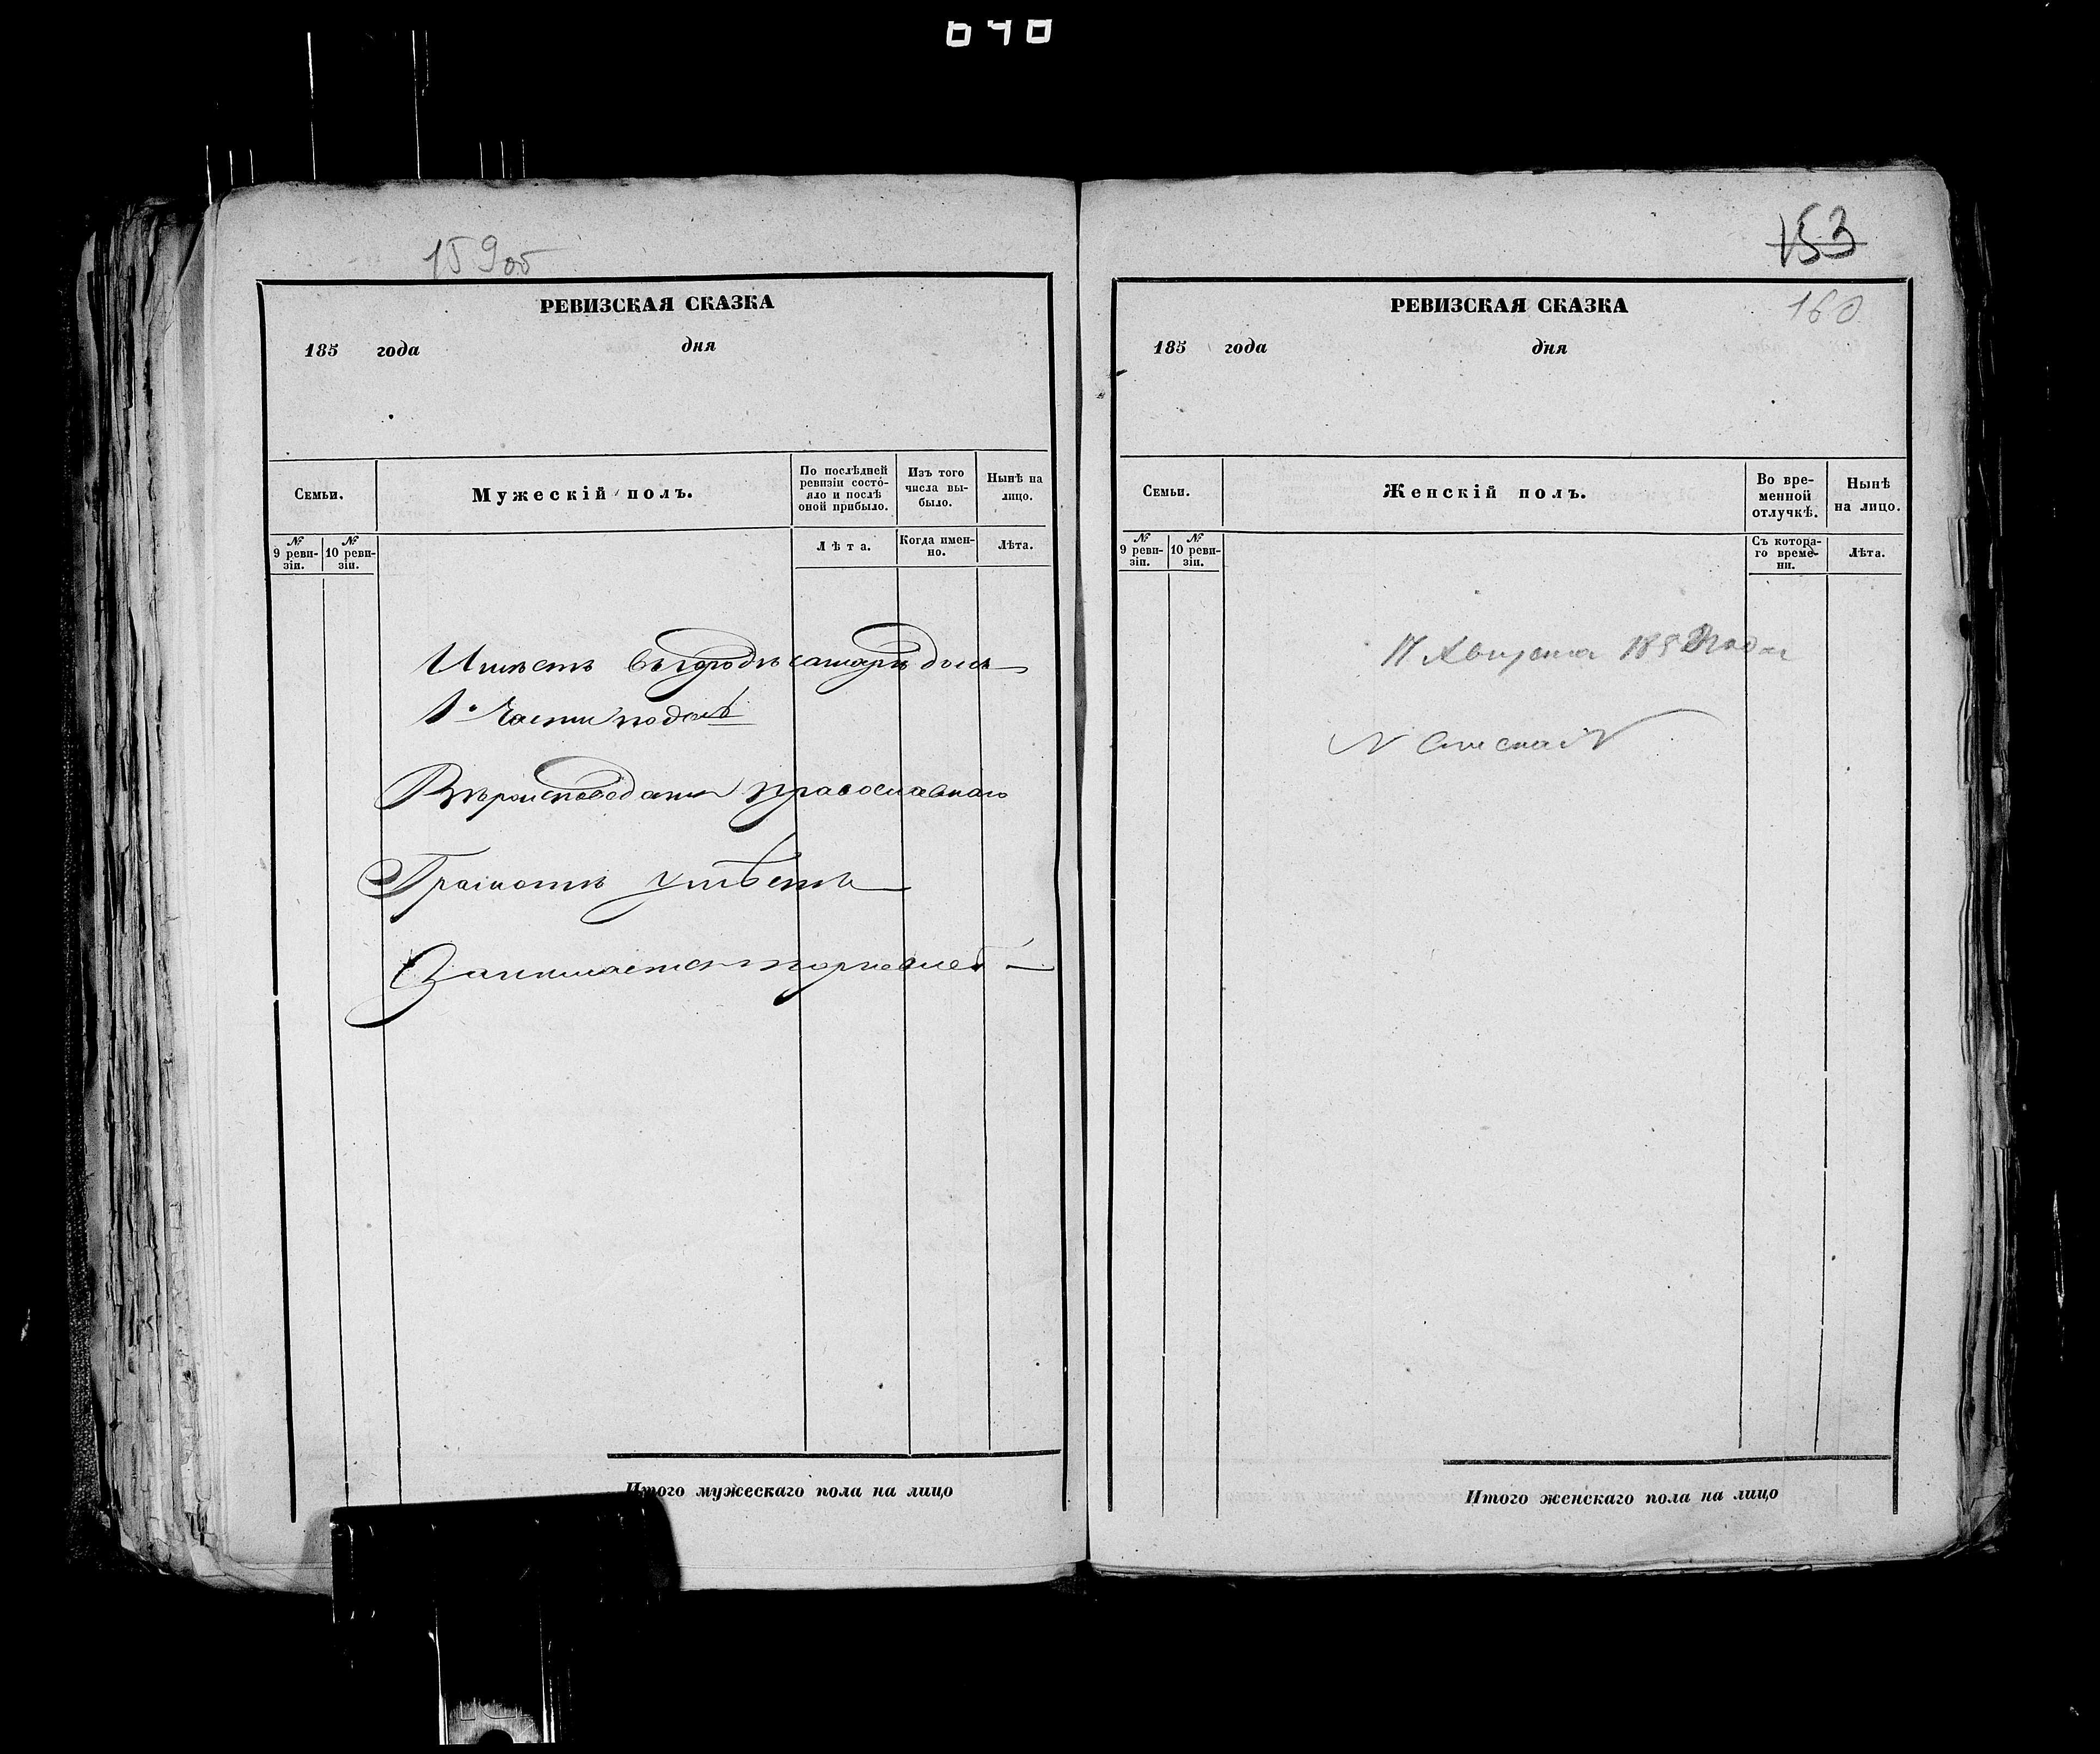 040
159об
РЕВИЗСКАЯ СКАЗКА
185 года дня
Семьи.
Мужескій полъ.
По послѣдней ревизіи состо-
яло и послѣ
оной прибыло.
Изъ того
числа вы-
было.
Нынѣ на
лицо.
№
9 реви-
зіи.
№
10 реви-
зіи.
Лѣта.
Когда имен-
но.
Лѣта.
Имѣетъ въ городѣ самарѣ домъ
1й части
Вѣроисповеданія православнаго
Грамотѣ умѣетъ
Занимается торговлей
Итого мужескаго пола на лицо
153
160
РЕВИЗСКАЯ СКАЗКА
185 года дня
Семьи.
Женскій полъ.
Во вре-
менной
отлучкѣ.
Нынѣ
на лицо.
№
9 реви-
зіи.
№
10 реви-
зіи.
Съ котора-
го време-
ни.
Лѣта.
17 Августа года
Итого женскаго пола на лицо